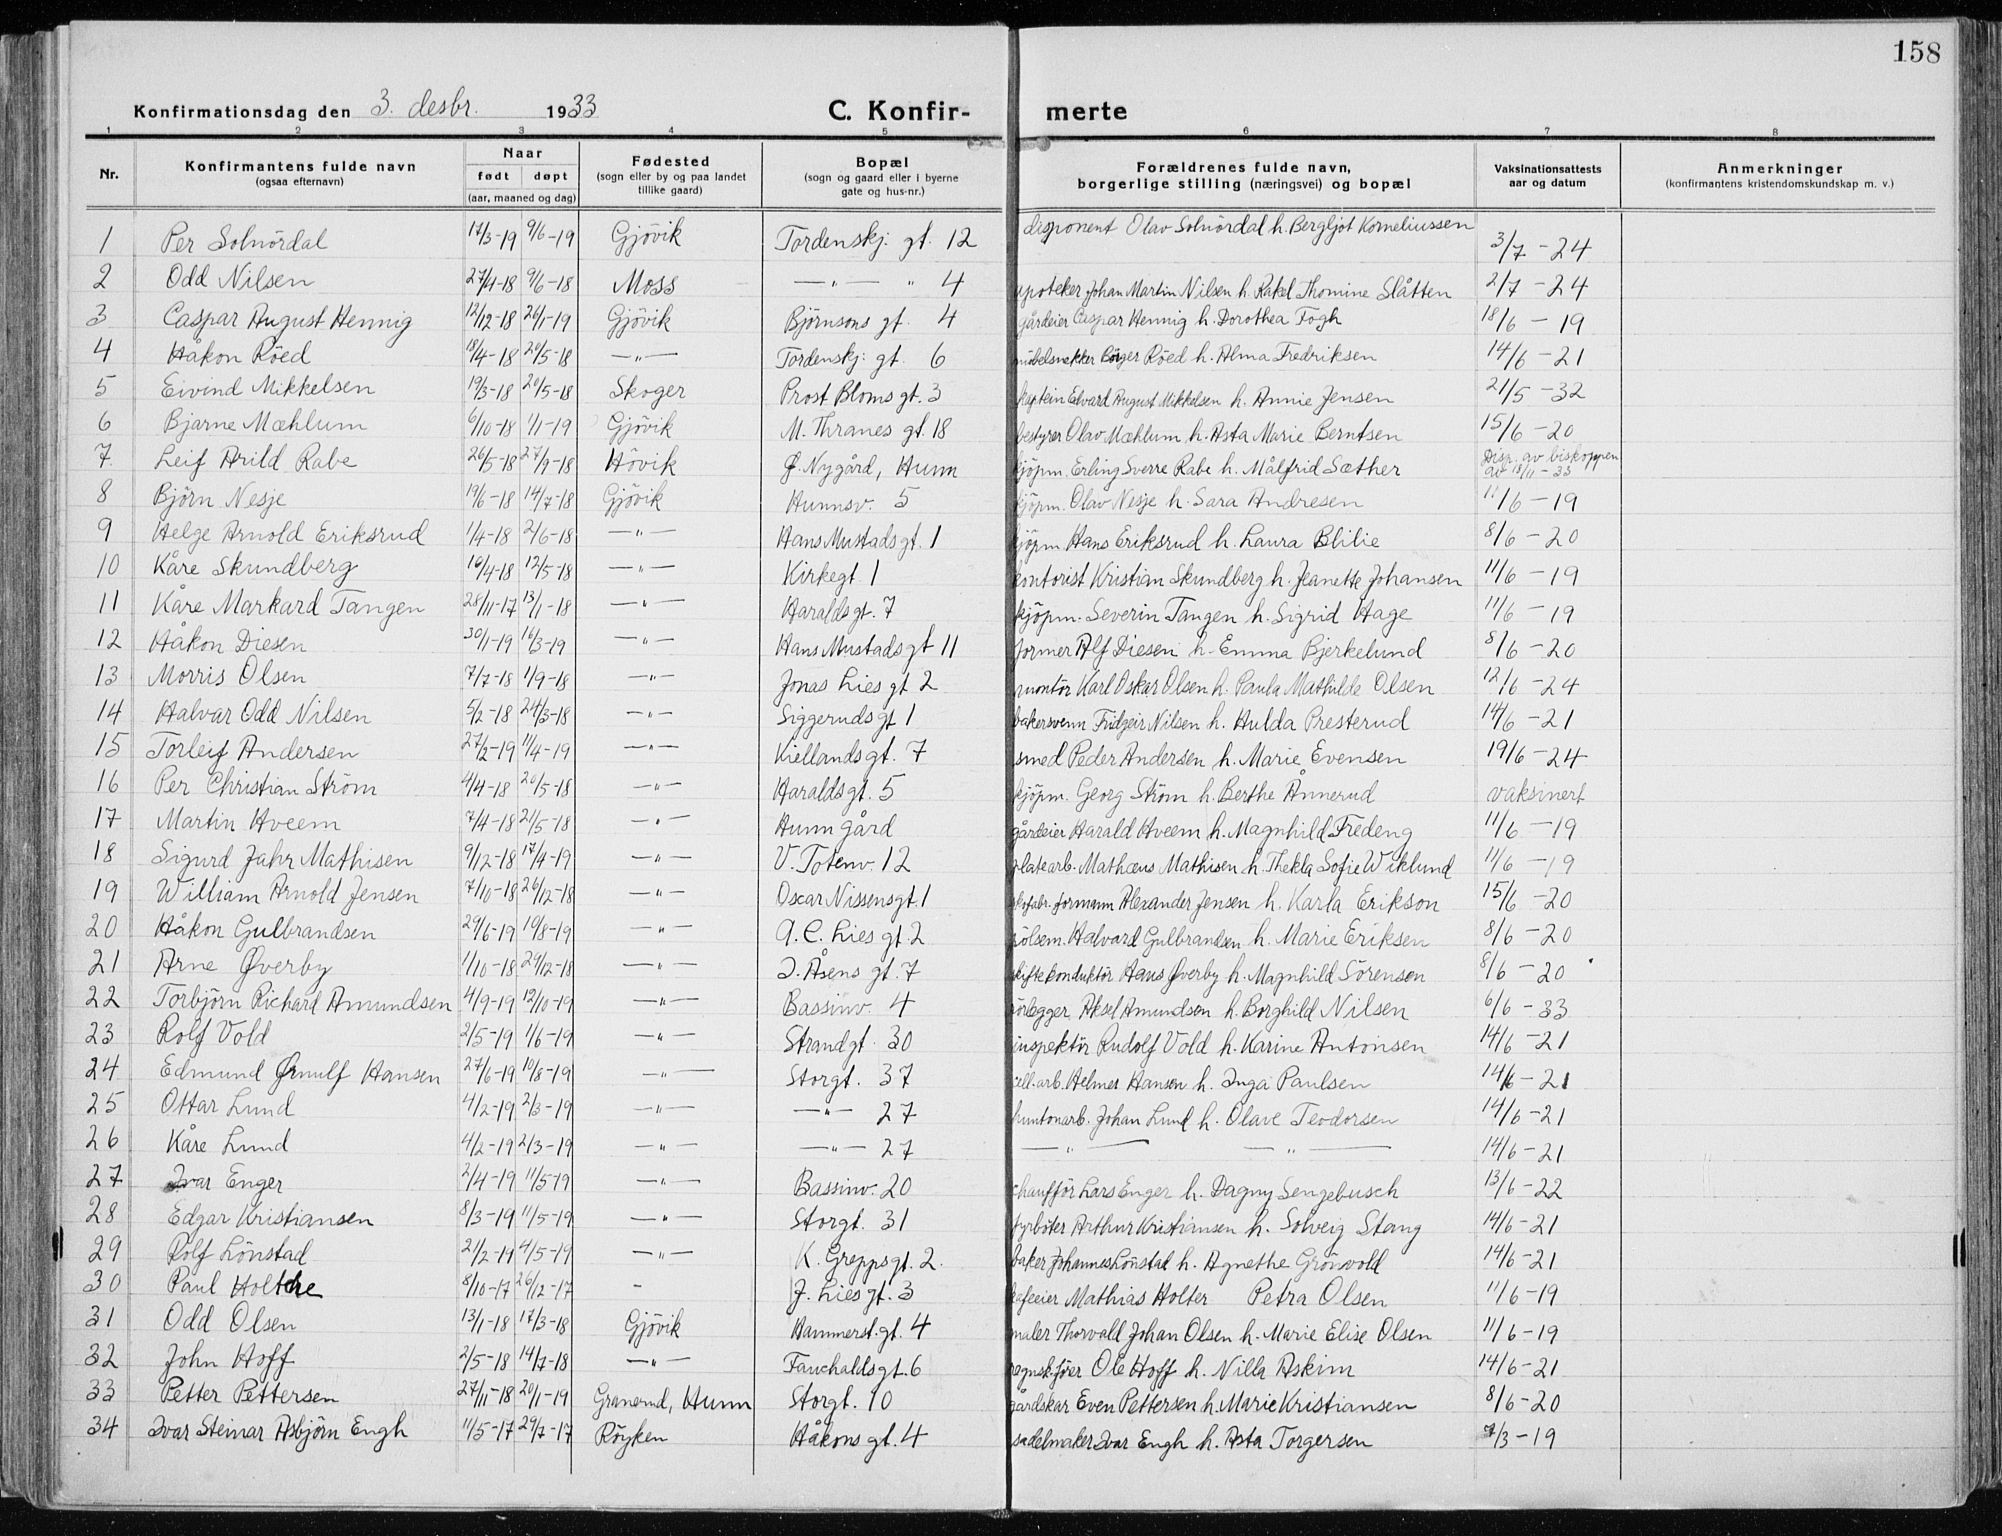 158
Konfirmationsdag den 3. desbr. 1933 C. Konfir- merte
1 2 3 4 5 6 7 8
Nr. Konfirmantens fulde navn (ogsaa efternavn) Naar født døpt (aar, maaned og dag) Fødested (sogn eller by og paa landet tillike gaard) Bopæl (sogn og gaard eller i byerne gate og hus-nr.) Forældrenes fulde navn, borgerlige stilling (næringsvei) og bopæl Vaksinationsattests aar og datum Anmerkninger (konfirmantens kristendomskundskap m. v.)
1 Per Solnördal 17/3-19 9/6-19 Gjövik Tordenskj. gt. 12 disponent Olav Solnördal h. Bergljot Korneliussen 3/7-24
2 Odd Nilsen 27/4-18 9/6-18 Moss —"— " 4 apoteker Johan Martin Nilsen h. Rakel Thomine Slåtten 2/7-24
3 Caspar August Hennig 12/12-18 26/1-19 Gjövik Björnsons gt. 4 gårdeier Caspar Hennig h. Dorothea Fogh 18/6-19
4 Håkon Röed 18/4-18 20/5-18 —"— Tordenskj: gt. 6 möbelsnekker Birger Röed h. Alma Fredriksen 14/6-21
5 Eivind Mikkelsen 19/3-18 20/5-18 Skoger Prost Bloms gt. 3 kaptein Edvard August Mikkelsen h. Annie Jensen 21/5-32
6 Bjarne Mæhlum 6/10-18 1/1-19 Gjövik M. Thranes gt. 18 bestyrer Olav Mæhlum h. Asta Marie Berntsen 15/6-20
7 Leif Arild Rabe 26/5-18 27/9-18 Hövik Ø. Nygård, Hunn kjöpm. Erling Sverre Rabe h. Målfrid Sæther Disp. av biskoppen av 18/11-33
8 Björn Nesje 19/6-18 14/7-18 Gjövik Hunnsv. 5 kjöpm. Olav Nesje h. Sara Andresen 11/6-19
9 Helge Arnold Eriksrud 1/4-18 2/6-18 —"— Hans Mustads gt. 1 kjöpm. Hans Eriksrud h. Laura Blilie 8/6-20
10 Kåre Skundberg 16/4-18 12/5-18 —"— Kirkegt. 1 kontorist Kristian Skundberg h. Jeanette Johansen 11/6-19
11 Kåre Markard Tangen 28/11-17 13/1-18 —"— Haralds gt. 7 kjöpm. Severin Tangen h. Sigrid Hage 11/6-19
12 Håkon Diesen 30/1-19 16/3-19 —"— Hans Mustads gt 11 former Alf Diesen h. Emma Bjerkelund 8/6-20
13 Morris Olsen 7/7-18 1/9-18 —"— Jonas Lies gt 2 montör Karl Oskar Olsen h. Paula Mathilde Olsen 12/6-24
14 Halvar Odd Nilsen 5/2-18 24/3-18 —"— Siggeruds gt 1 bakersvenn Fridgeir Nilsen h. Hulda Presterud 14/6-21
15 Torleif Andersen 27/2-19 11/4-19 —"— Kiellands gt. 7 smed Peder Andersen h. Marie Evensen 19/6-24
16 Per Christian Ström 4/4-18 20/5-18 —"— Haralds gt. 5 kjöpm. Georg Ström h. Berthe Ånnerud vaksinert
17 Martin Hveem 7/4-18 21/5-18 —"— Hunn gård gårdeier Harald Hveem h. Magnhild Fredeng 11/6-19
18 Sigurd Jahr Mathisen 9/12-18 17/4-19 —"— V. Totenv. 12 platearb. Mathæus Mathisen h. Thekla Sofie Wiklund 11/6-19
19 William Arnold Jensen 7/10-18 26/12-18 —"— Oscar Nissens gt. 1 skofabr. formann Alexander Jensen h. Karla Erikson 15/6-20
20 Håkon Gulbrandsen 29/6-19 10/8-19 —"— A. C. Lies gt. 2 Halvard Gulbrandsen h. Marie Eriksen 8/6-20
21 Arne Øverby 1/10-18 29/12-18 —"— I. Åsens gt. 7 skiftekonduktör Hans Øverby h. Magnhild Sörensen 8/6-20
22 Torbjörn Richard Amundsen 4/9-19 12/10-19 —"— Bassinv. 4 rörlegger Aksel Amundsen h. Borghild Nilsen 6/6-33
23 Rolf Vold 2/5-19 1/6-19 —"— Strandgt. 30 inspektör Rudolf Vold h. Karine Antonsen 14/6-21
24 Edmund Ørnulf Hansen 27/6-19 10/8-19 —"— Storgt. 37 cell.arb. Helmer Hansen h. Inga Paulsen 14/6-21
25 Ottar Lund 4/2-19 2/3-19 —"— —"— 27 huntonarb. Johan Lund h. Olave Teodorsen 14/6-21
26 Kåre Lund 4/2-19 2/3-19 —"— —"— 27 —"— —"— 14/6-21
27 Ivar Enger 2/4-19 11/5-19 —"— Bassinv. 20 chaufför Lars Enger h. Dagny Sengebusch 13/6-22
28 Edgar Kristiansen 8/3-19 11/5-19 —"— Storgt. 31 fyrböter Arthur Kristiansen h. Solveig Stang 14/6-21
29 Rolf Lönstad 21/2-19 4/5-19 —"— K. Grepps gt. 2. baker Johannes Lönstad h. Agnethe Grönvold 14/6-21
30 Paul 8/10-17 26/12-17 - J. Lies gt. 3 kafeeier Mathias Holter Petra Olsen 11/6-19
31 Odd Olsen 13/1-18 17/3-18 Gjövik Hammerst. gt. 4 maler Thorvald Johan Olsen h. Marie Elise Olsen 11/6-19
32 John Hoff 2/5-18 14/7-18 —"— Fauchalds gt. 6 regnsk.förer Ole Hoff h. Nilla Askim 14/6-21
33 Petter Pettersen 27/11-18 20/1-19 Hunn Storgt. 10 gårdskar Even Pettersen h. Marie Kristiansen 8/6-20
34 Ivar Steinar Asbjörn Engh 11/5-17 29/7-17 Röyken Håkons gt. 4 sadelmaker Ivar Engh h. Asta Torgersen 7/3-19